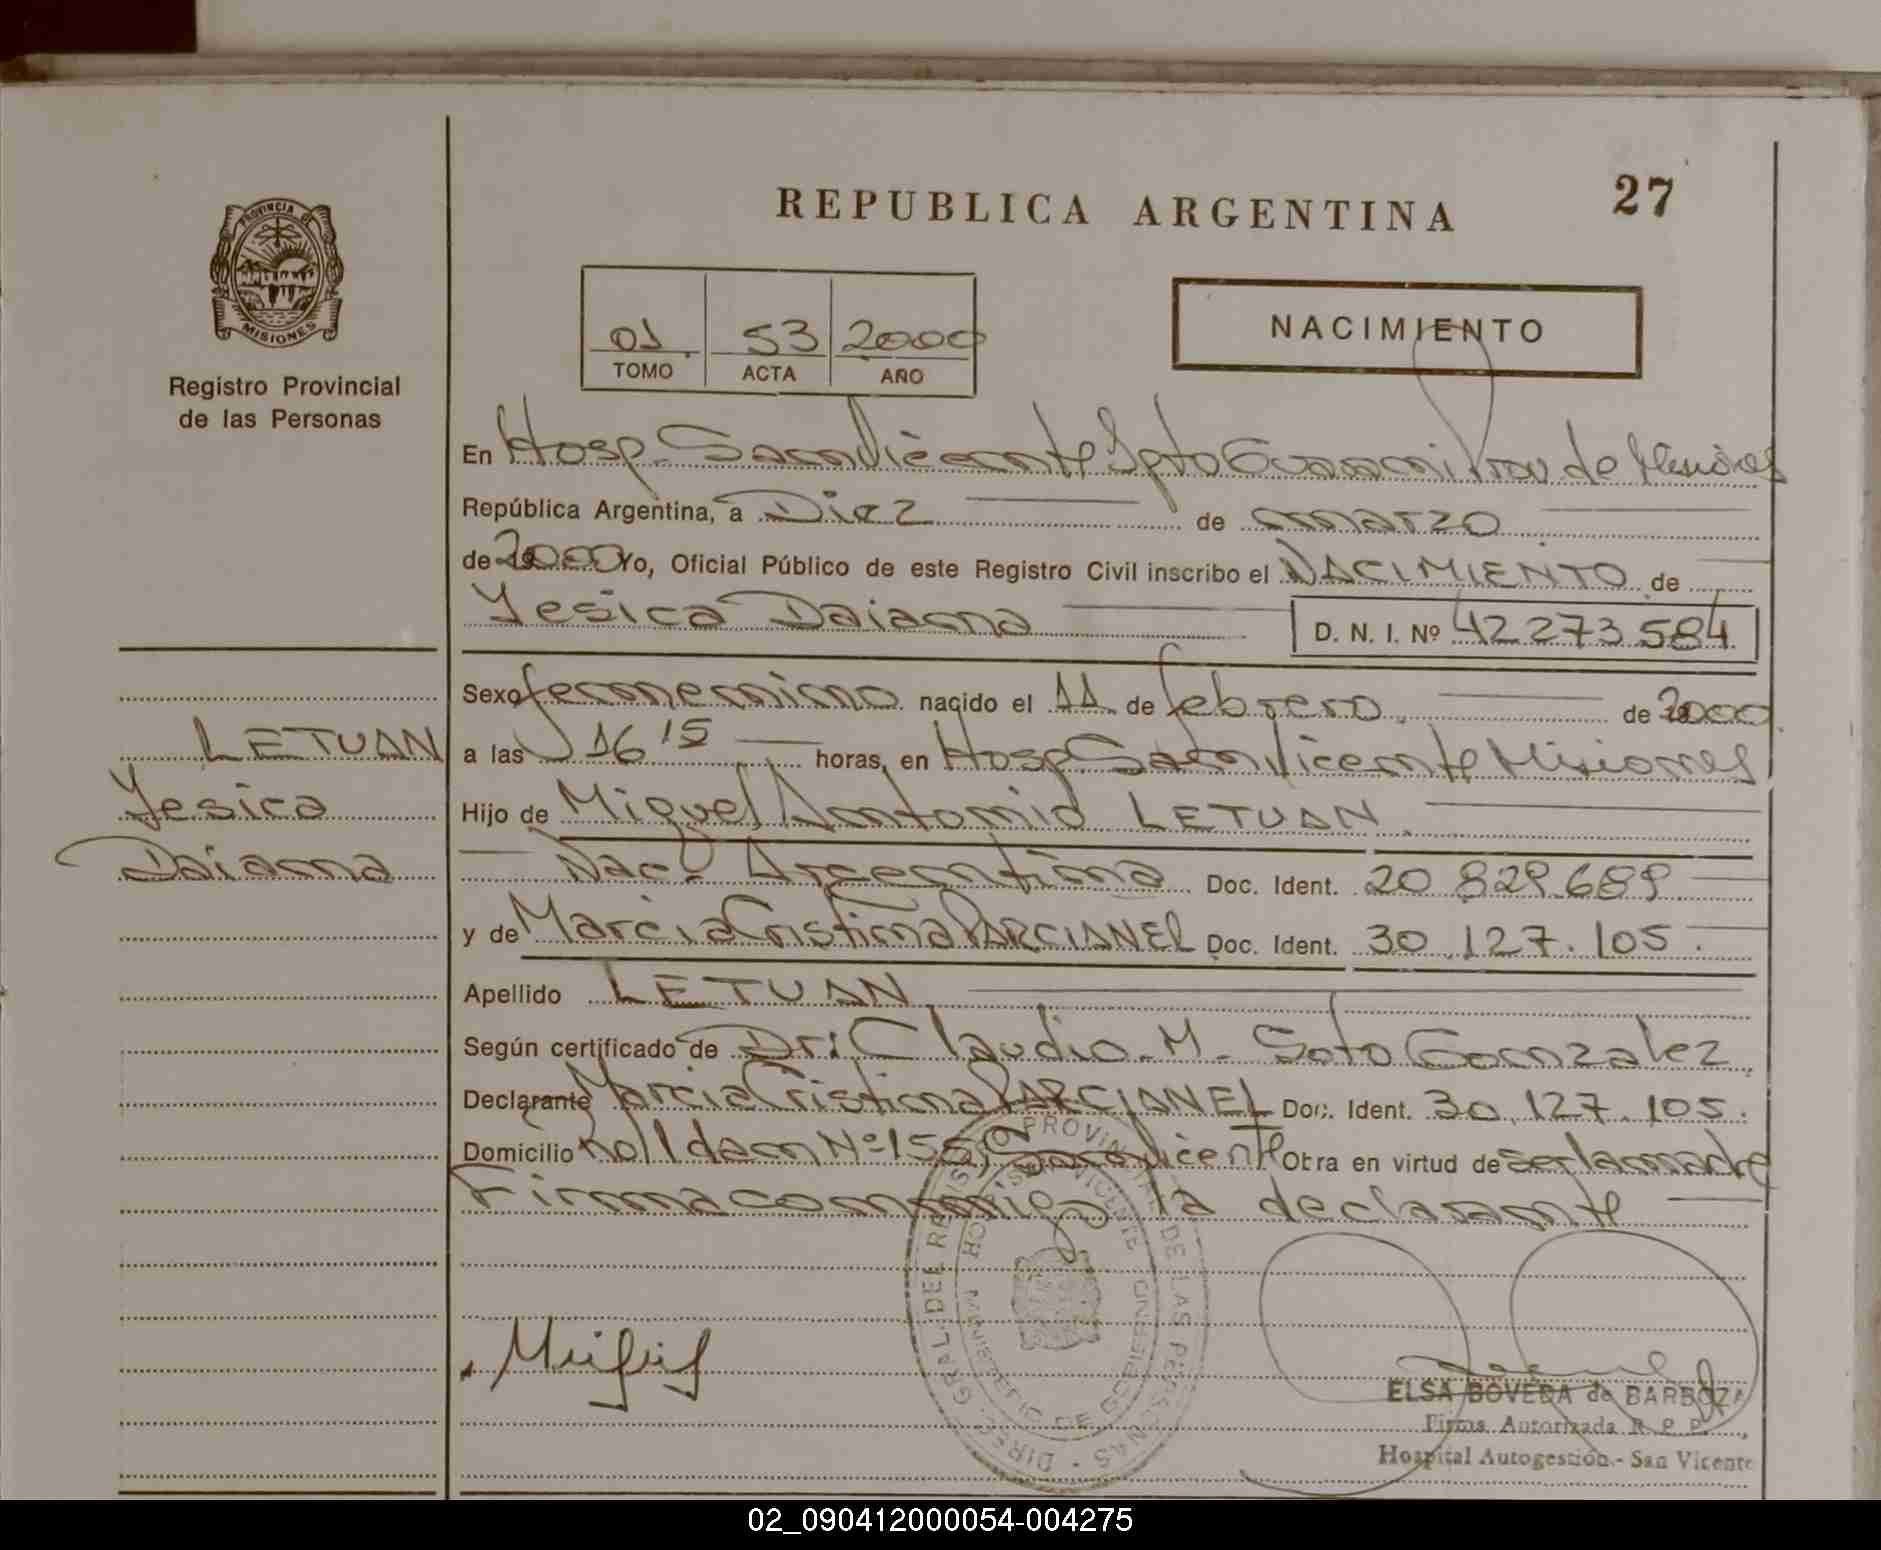 REPUBLICA ARGENTINA
27
PROVINCIA DE
MISIONES
Registro Provincial
de las Personas
01 53 2000
TOMO ACTA AÑO
NACIMIENTO
En Hosp. San Vicente Dpto Guarani Prov de Misiones
República Argentina, a Diez de marzo
de 2000 Yo, Oficial Público de este Registro Civil inscribo el NACIMIENTO de
Yesica Daiana D. N. I. Nº 42 273 584
Sexo femenino nacido el 11 de febrero de 2000
a las 16 15 horas, en Hosp San Vicente Misiones
Hijo de Miguel Antonio LETUAN
Nac. Argentina Doc. Ident. 20 829.689
y de Marcia Cristina PARCIANEL Doc. Ident. 30.127.105.
Apellido LETUAN
Según certificado de Dr: Claudio M. Soto Gonzalez
Declarante Marcia Cristina PARCIANEL Doc. Ident. 30.127.105.
Domicilio Nº 155, San Vicente Obra en virtud de ser la madre
Firma conmigo la declarante
LETUAN
Yesica
Daiana
DIREC. GRAL. DEL REGISTRO PROVINCIAL DE LAS PERSONAS
MINISTERIO DE GOBIERNO
ELSA BOVEDA de BARBOZA
Firma Autorizada R. P. P.
Hospital Autogestión - San Vicente
02_090412000054-004275